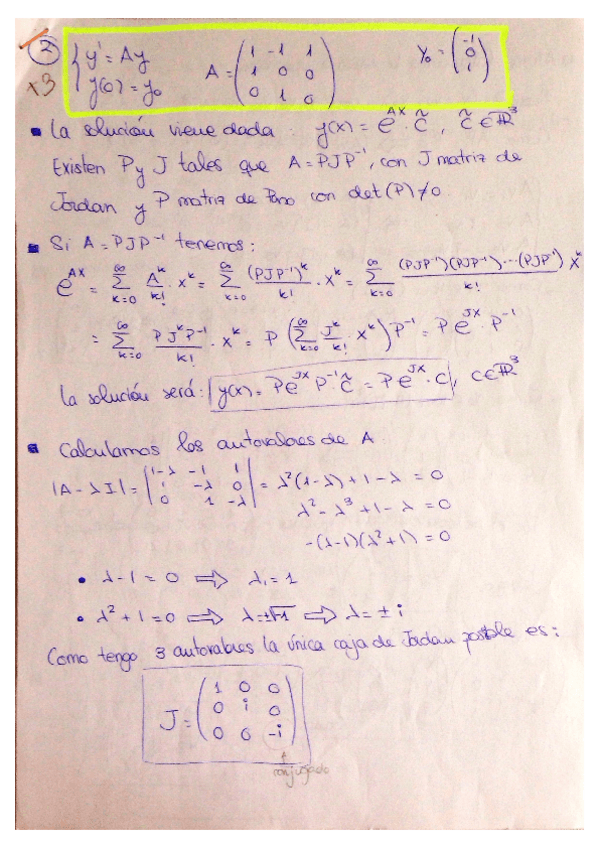 ② { y' = Ay
x3 { y(0) = y₀    A = ( 1 -1 1 / 1 0 0 / 0 1 0 )    Y₀ = ( -1 / 0 / 1 )
▪ La solución viene dada: y(x) = e^{AX} · c̃, c̃ ∈ ℝ³
Existen P y J tales que A = PJP⁻¹, con J matriz de
Jordan y P matriz de Paso con det(P) ≠ 0
▪ Si A = PJP⁻¹ tenemos:
e^{AX} = ∑_{k=0}^{∞} A^k/k! · x^k = ∑_{k=0}^{∞} (PJP⁻¹)^k/k! · x^k = ∑_{k=0}^{∞} (PJP⁻¹)(PJP⁻¹)···(PJP⁻¹)/k! x^k
= ∑_{k=0}^{∞} P J^k P⁻¹/k! · x^k = P ( ∑_{k=0}^{∞} J^k/k! x^k ) P⁻¹ = P e^{JX} · P⁻¹
La solución será: y(x) = P e^{JX} P⁻¹ c̃ = P e^{JX} · C, C ∈ ℝ³
▪ Calculamos los autovalores de A
|A - λI| = | 1-λ -1 1 / 1 -λ 0 / 0 1 -λ | = λ²(1-λ) + 1 - λ = 0
λ² - λ³ + 1 - λ = 0
-(λ-1)(λ²+1) = 0
• λ - 1 = 0 ⟹ λ₁ = 1
• λ² + 1 = 0 ⟹ λ = ±√-1 ⟹ λ = ± i
Como tengo 3 autovalores la única caja de Jordan posible es:
J = ( 1 0 0 / 0 i 0 / 0 0 -i )
↑
conjugado